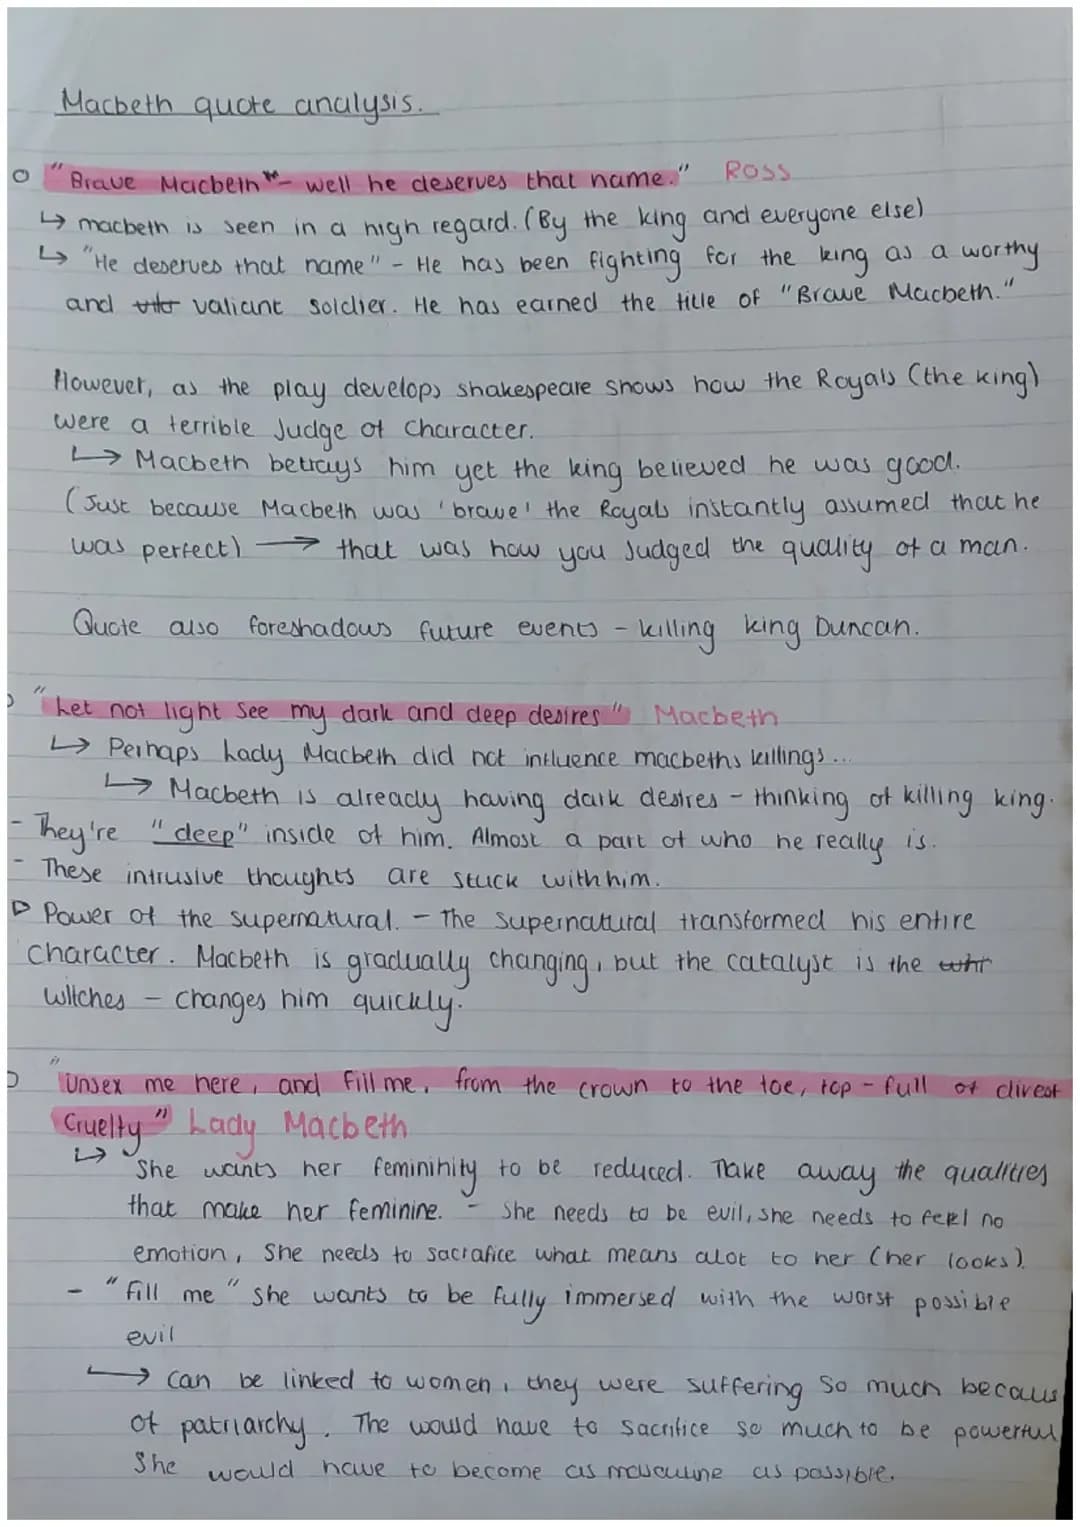 Macbeth quote analysis.
"Brave Macbeth"- well he deserves that name." ROSS
↳ macbeth is seen in a high regard. (By the king and everyone else)
↳ "He deserves that name" - He has been fighting for the king as a worthy
and valiant soldier. He has earned the title of "Brave Macbeth."
However, as the play develops shakespeare shows how the Royals (the king)
were a terrible Judge of Character.
↳ Macbeth betrays him yet the king believed he was good.
(Just because Macbeth was 'brave' the Royals instantly assumed that he
was perfect) → that was how you Judged the quality of a man.
Quote also foreshadows future events - killing king Duncan.
"Let not light see my dark and deep desires" Macbeth
↳ Perhaps Lady Macbeth did not influence macbeths killings...
↳ Macbeth is already having dark desires - thinking of killing king.
- They're "deep" inside of him. Almost a part of who he really is.
- These intrusive thoughts are stuck with him.
▷ Power of the supernatural. - The supernatural transformed his entire
character. Macbeth is gradually changing, but the catalyst is the
witches - changes him quickly.
"Unsex me here, and fill me, from the crown to the toe, top-full of direst
Cruelty" Lady Macbeth
↳ She wants her femininity to be reduced. Take away the qualities
that make her feminine. - She needs to be evil, she needs to feel no
emotion, She needs to sacrafice what means alot to her (her looks).
- "fill me" she wants to be fully immersed with the worst possible
evil
↳ Can be linked to women, they were suffering so much becaus
of patriarchy. The would have to sacrifice so much to be powerful
She would have to become as masculine as possible.